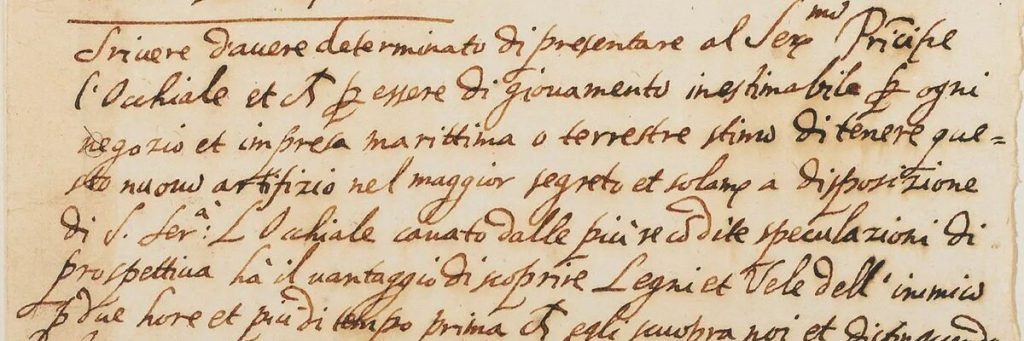 Srivere d'avere determinato di presentare al Ser.mo Pricipe
l'Occhiale et ch p essere di giovamento inestimabile p ogni
negozio et impresa marittima o terrestre stimo di tenere que=
sto nuovo artifizio nel maggior segreto et solam a disposizione
di S. Ser.a: L'Occhiale cavato dalle più recodite speculazioni di
prospettiva hà il vantaggio di scoprire Legni et Vele dell'inimico
p due hore et più di tempo prima ch egli scuopra noi et distinguendo